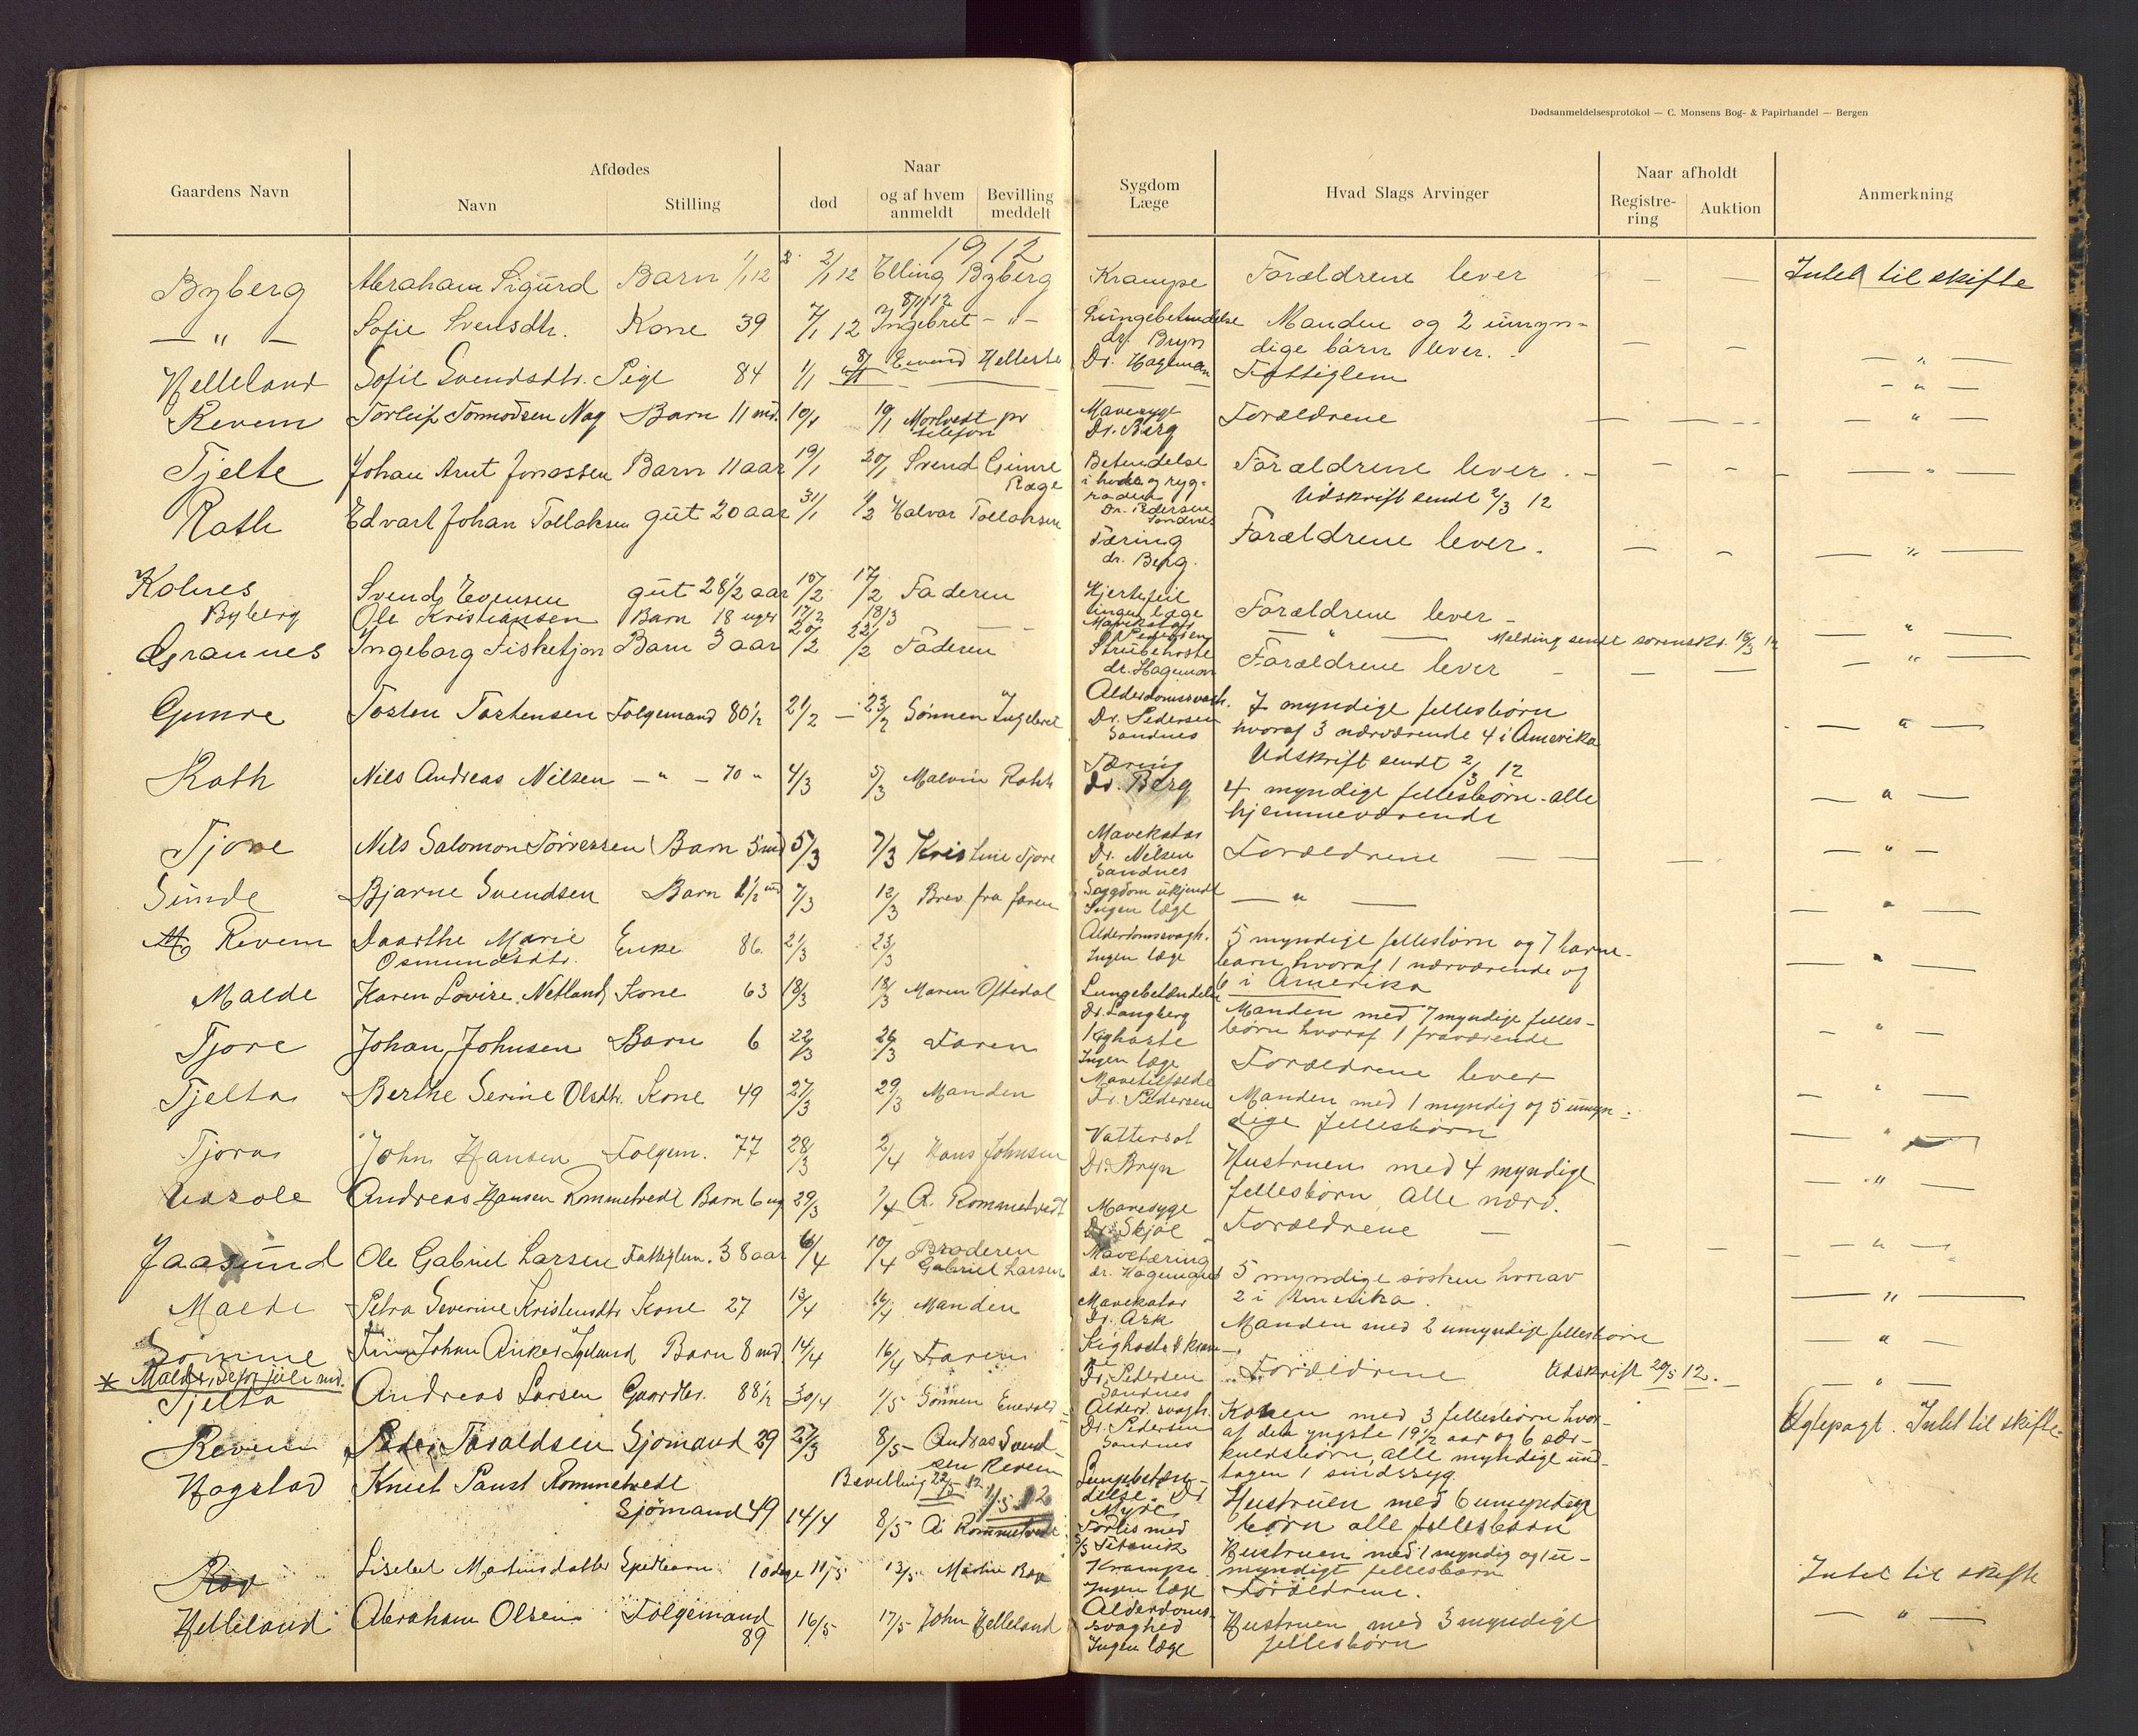 Dødsanmeldelsesprotokol — C. Monsens Bog- & Papirhandel — Bergen
Gaardens Navn
Afdødes
Navn
Stilling
Naar
død
og af hvem anmeldt
Bevilling meddelt
Sygdom
Læge
Hvad Slags Arvinger
Naar afholdt
Registre-
ring
Auktion
Anmerkning
1912
Byberg Abraham Sigurd Barn 1/1 12 2/1 12 Elling Byberg Krampe Forældrene lever — — Intet til skifte
— " — Sofie Svensdtr. Kone 39 7/1 12 8/1 12 Ingebret — " — Lungebetendelse Manden og 2 umyn-
dr. Bryn dige børn lever. — — — " —
Helleland Sofie Svendsdtr. Pige 84 1/1 8/1 Dr. Hageman Fattiglem — " —
Revem Torleif Tormodsen Nag Barn 11 md. 10/1 19/1 pr telefon Mavesyge Dr. Berg Forældrene — — — " —
Tjelte Johan Arnt Jonassen Barn 11 aar 19/1 20/1 Svend Gimre Ræge Betendelse Forældrene lever — — — " —
i hode og ryg-
raden Udskrift sendt 2/3 12
Dr. Pedersen
Sandnes
Roth Edvart Johan Tollaksen gut 20 aar 31/1 1/2 Halvor Tollaksen Tæring Forældrene lever. — — — " —
dr. Berg.
Kolnes Svend Evensen gut 28 1/2 aar 15/2 17/2 Faderen Hjertefeil Forældrene lever — — " —
ingen læge
Byberg Ole Kristiansen Barn 18 uger 17/2 18/3 — Mavekatar — " — Melding sendt sorenskr. 15/3 12
Dr. Pedersen
Grannes Ingeborg Fisketjon Barn 3 aar 20/2 22/2 Faderen Strubehoste Forældrene lever — — — " —
dr. Hageman
Gimre Tosten Tostensen Folgemand 80 1/2 21/2 — 23/2 Sønnen Ingebret Alderdomssvagh. 7 myndige fellesbørn
Dr. Pedersen hvoraf 3 nærværende 4 i Amerika — " —
Sandnes
Udskrift sendt 2/3 12
Roth Nils Andreas Nilsen — " — 70 " 4/3 5/3 Malvin Roth Tæring
Dr. Berg 4 myndige fellesbørn - alle — " —
hjemmeværende
Tjore Nils Salomon Torversen Barn 5 md 5/3 7/3 Kristine Tjore Mavekatar
Dr. Nilsen Forældrene — — — " —
Sandnes
Sunde Bjarne Svendsen Barn 1 1/2 md 7/3 12/3 Brev fra faren Sygdom ukjendt — " — — " —
Ingen læge
Revem Daarthe Marie Enke 86 21/3 23/3 Alderdomssvagh. 5 myndige fellesbørn og 7 barne-
Osmundsdtr. Ingen læge barn hvoraf 1 nærværende og — " —
6 i Amerika
Malde Karen Lovise Netland Kone 63 18/3 18/3 Maren Oftedal Lungebetændelse
Dr. Langberg Manden med 7 myndige felles-
børn hvoraf 1 fraværende — " —
Tjore Johan Johnsen Barn 6 22/3 26/3 Faren Kighoste
Ingen læge Forældrene lever — " —
Tjelta Berthe Serine Olsdtr. Kone 49 27/3 29/3 Manden Mavetilfælde
Dr. Pedersen Manden med 1 myndig og 5 umyn-
dige fellesbørn — " —
Tjora John Hansen Folgem. 77 28/3 2/4 Hans Johnsen Vattersot
Dr. Bryn Hustruen med 4 myndige
fellesbørn. Alle nærv. — " —
Andreas Hansen Rommetvedt Barn 6 ug 29/3 1/4 A. Rommetvedt Mavesyge
Dr. Skjøl Forældrene — — — " —
Jaasund Ole Gabriel Larsen Fattiglem. 38 aar 6/4 10/4 Broderen Gabriel Larsen Mavetæring
5 myndige søsken hvorav
2 i Amerika. — " —
Malde Petra Severine Kristensdtr Kone 27 13/4 16/4 Manden Mavekatar
Dr. Ask Manden med 2 umyndige fellesbørn — " —
Sømme Johan Anker Barn 8 md. 14/4 16/4 Faren Kighoste & kram-
pe
Dr. Pedersen Forældrene Udskrift 20/5 12. — " —
Sandnes
Tjelta Andreas Larsen Gaardbr. 88 1/2 30/4 1/5 Sønnen Enevald Alderd. svagh. Konen med 3 fellesbørn hvor- Egtepagt. Intet til skifte.
Dr. Pedersen af den yngste 19 1/2 aar og 6 sær-
Sandnes kuldsbørn, alle myndige und-
tagen 1 sindssyg.
Revem Peder Taraldsen Sjømand 29 27/3 8/5 Andras Svend-
sen Revem Lungebetæn-
delse. Dr Myre Hustruen med 6 umyndige
børn alle fellesbørn
Bevilling 22/5 12
Hogstad Knut Paust Rommetvedt
Sjømand 49 14/4 8/5 A. Rommetvedt Forlis med
S/S Titanik Hustruen med 1 myndig og 1 u-
myndigt fellesbarn
Røv Lisebet Martinsdatter Spedbarn 10 dage 11/5 13/5 Martin Røv Krampe
Ingen læge Forældrene. Intet til skifte
Helleland Abraham Olsen Folgemand 89 16/5 17/5 John Helleland Alderdoms-
svaghed
Ingen læge Hustruen med 3 myndige
fellesbørn — " —